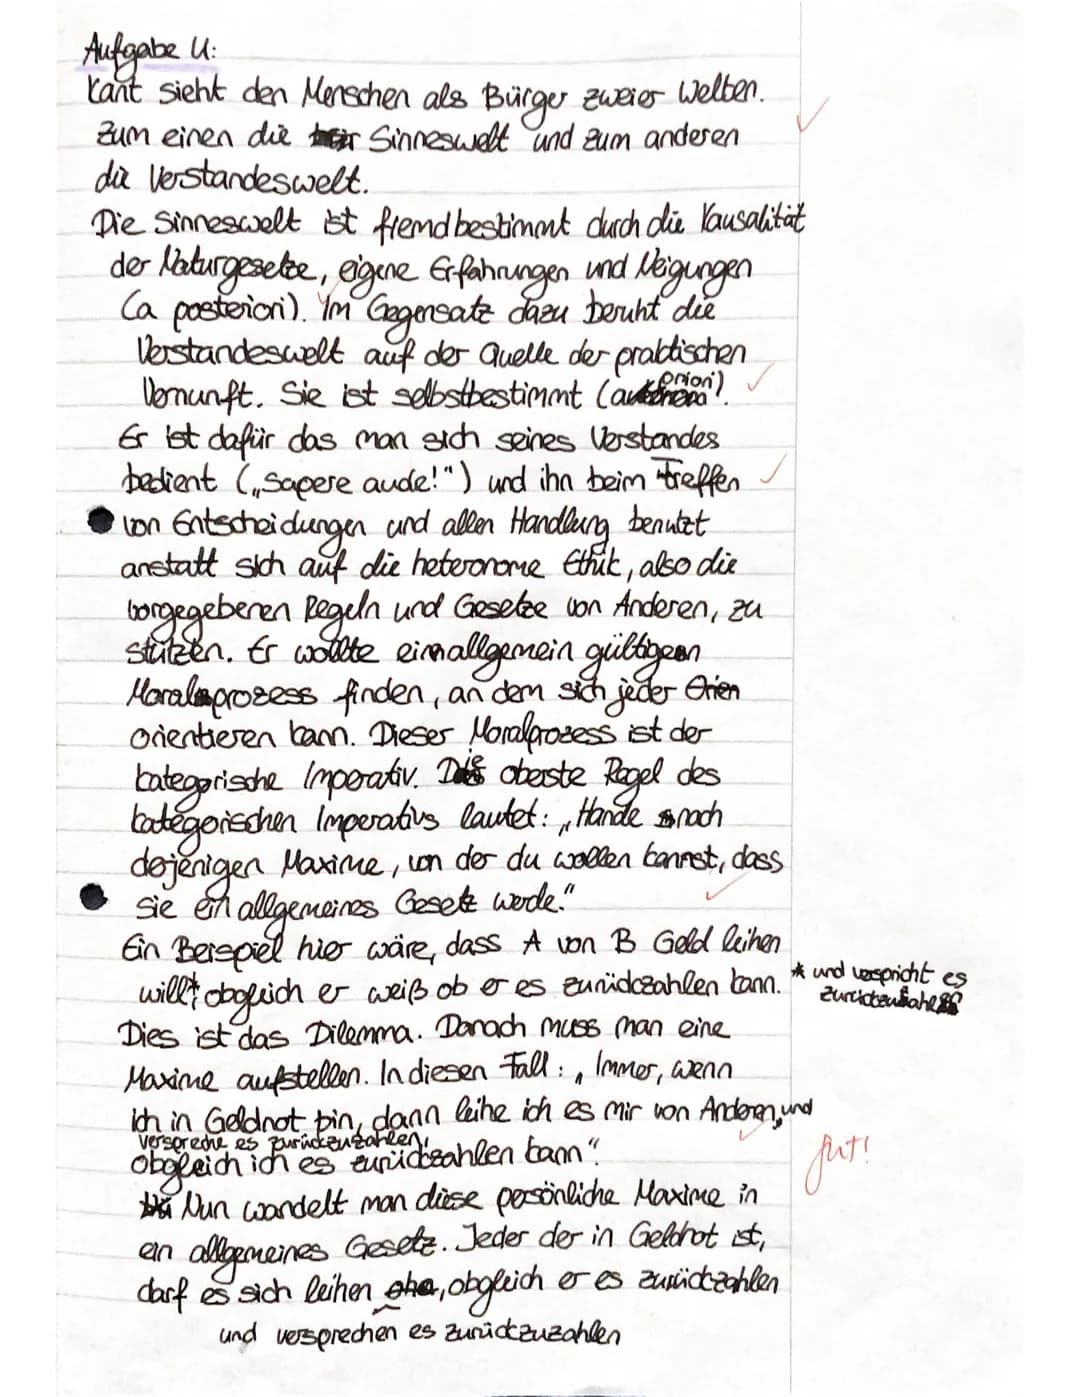 Aufgabe U:
Kant sieht den Menschen als Bürger zweier Welten.
Zum einen die Sinneswelt und zum anderen
die Verstandeswelt.
Die Sinneswelt ist fremdbestimmt durch die Kausalität
der Naturgesetze, eigene Erfahrungen und Neigungen
(a posteriori). Im Gegensatz dazu beruht die
Verstandeswelt auf der Quelle der praktischen
Vernunft. Sie ist selbstbestimmt (a priori).
Er ist dafür das man sich seines Verstandes
bedient („Sapere aude!") und ihn beim Treffen
von Entscheidungen und allen Handlung benutzt
anstatt sich auf die heteronome Ethik, also die
vorgegebenen Regeln und Gesetze von Anderen, zu
stützen. Er wollte ein allgemein gültigen
Moralprozess finden, an dem sich jeder
orientieren kann. Dieser Moralprozess ist der
kategorische Imperativ. Die oberste Regel des
kategorischen Imperativs lautet: „Hande nach
derjenigen Maxime, von der du wollen kannst, dass
sie ein allgemeines Gesetz werde."
Ein Beispiel hier wäre, dass A von B Geld leihen
will* obgleich er weiß ob er es zurückzahlen kann. * und verspricht es
Dies ist das Dilemma. Danach muss man eine
Maxime aufstellen. In diesen Fall: „Immer, wenn
ich in Geldnot bin, dann leihe ich es mir von Anderen, und
verspreche es zurückzuzahlen,
obgleich ich es zurückzahlen kann".
gut!
Nun wandelt man diese persönliche Maxime in
ein allgemeines Gesetz. Jeder der in Geldnot ist,
darf es sich leihen, obgleich er es zurückzahlen
und versprechen es zurückzuzahlen